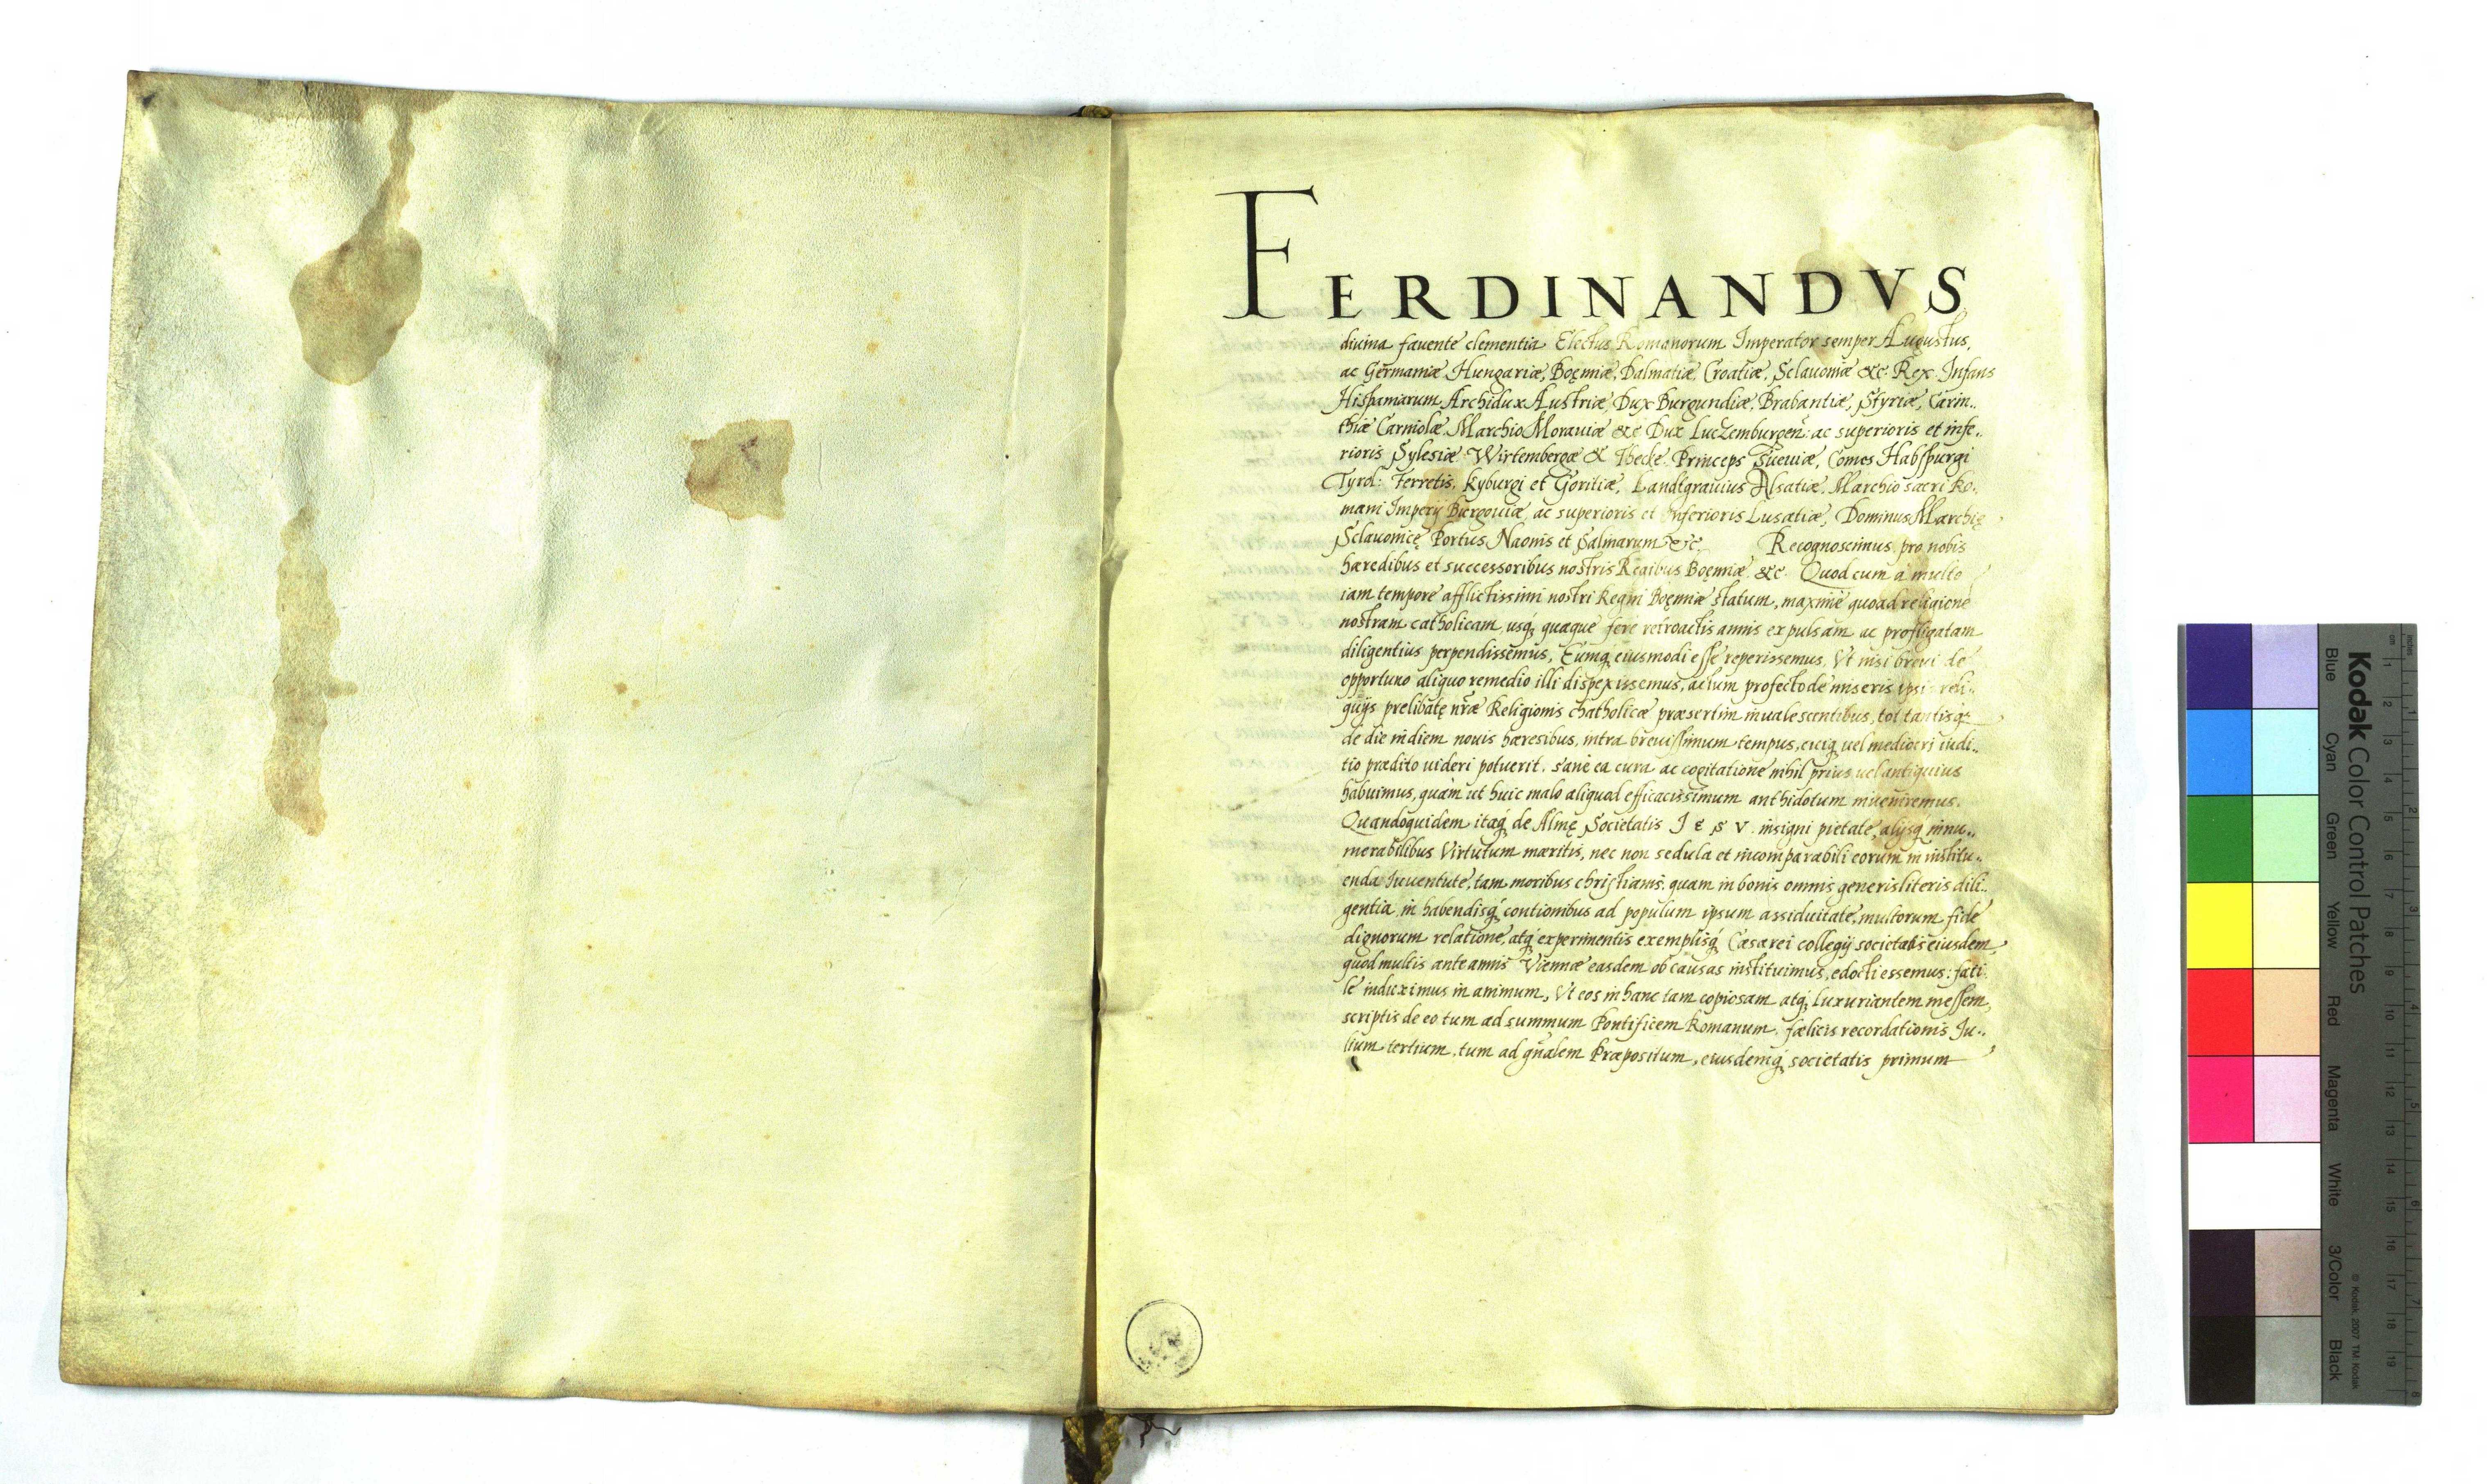 FERDINANDVS
diuina fauente clementia Electus Romanorum Imperator semper Augustus,
ac Germaniæ Hungariæ, Boęmiæ, Dalmatiæ, Croatiæ, Sclauoniæ &c. Rex. Infans
Hispaniarum Archidux Austriæ, Dux Burgundiæ, Brabantiæ, Styriæ, Carin..
thiæ Carniolæ Marchio Morauiæ &c Dux Luczemburgen: ac superioris et infe..
rioris Sylesiæ Wirtembergæ & Thecke Princeps Sueuiæ, Comes Habspurgi
Tyrol: Ferretis, Kyburgi et Goritiæ, Landtgrauius Alsatiæ, Marchio sacri Ro..
mani Imperij Burgouiæ, ac superioris et Inferioris Lusatiæ, Dominus Marchię
Sclauonicę Portus Naonis et Salinarum &c. Recognoscimus pro nobis
hæredibus et successoribus nostris Regibus Boęmiæ &c. Quod cum à multo
iam tempore afflictissimi nostri Regni Boęmiæ statum, maximè quoad religionē
nostram catholicam, usq; quaque fere retroactis annis expulsam ac profligatam
diligentius perpendissemus, Eumq; eiusmodi esse reperissemus, Vt nisi breui de
opportuno aliquo remedio illi dispexissemus, actum profecto de miseris ipsi reli..
quijs prelibatę nr̄æ Religionis chatholicæ præsertim inualescentibus, tot tantisq;
de die in diem nouis hæresibus, intra breuissimum tempus, cuiq; uel mediocri iudi..
tio prædito uideri potuerit. sanè ea cura ac cogitatione nihil prius uel antiquius
habuimus, quàm ut huic malo aliquod efficacissimum anthidotum inueniremus.
Quandoquidem itaq; de Almę Societatis IESV insigni pietate, alijsq; innu..
merabilibus Virtutum mæritis, nec non sedula et incomparabili eorum in institu..
enda Iuuentute, tam moribus christianis, quam in bonis omnis generis literis dili..
gentia, in habendisq; contionibus ad populum ipsum assiduitate, multorum fide
dignorum relatione, atq; experimentis exemplisq; Cæsarei collegij societatis eiusdem,
quod multis ante annis Viennæ easdem ob causas instituimus, edocti essemus: faci
le induximus in animum, Vt eos in hanc tam copiosam atq; luxuriantem messem,
scriptis de eo tum ad summum Pontificem Romanum fælicis recordationis Iu..
lium tertium, tum ad gn̄alem Præpositum, eiusdemq; societatis primum
Kodak Color Control Patches
Blue Cyan Green Yellow Red Magenta White 3/Color Black
© Kodak, 2007 TM: Kodak
cm 1 2 3 4 5 6 7 8 9 10 11 12 13 14 15 16 17 18 19
inches 1 2 3 4 5 6 7 8